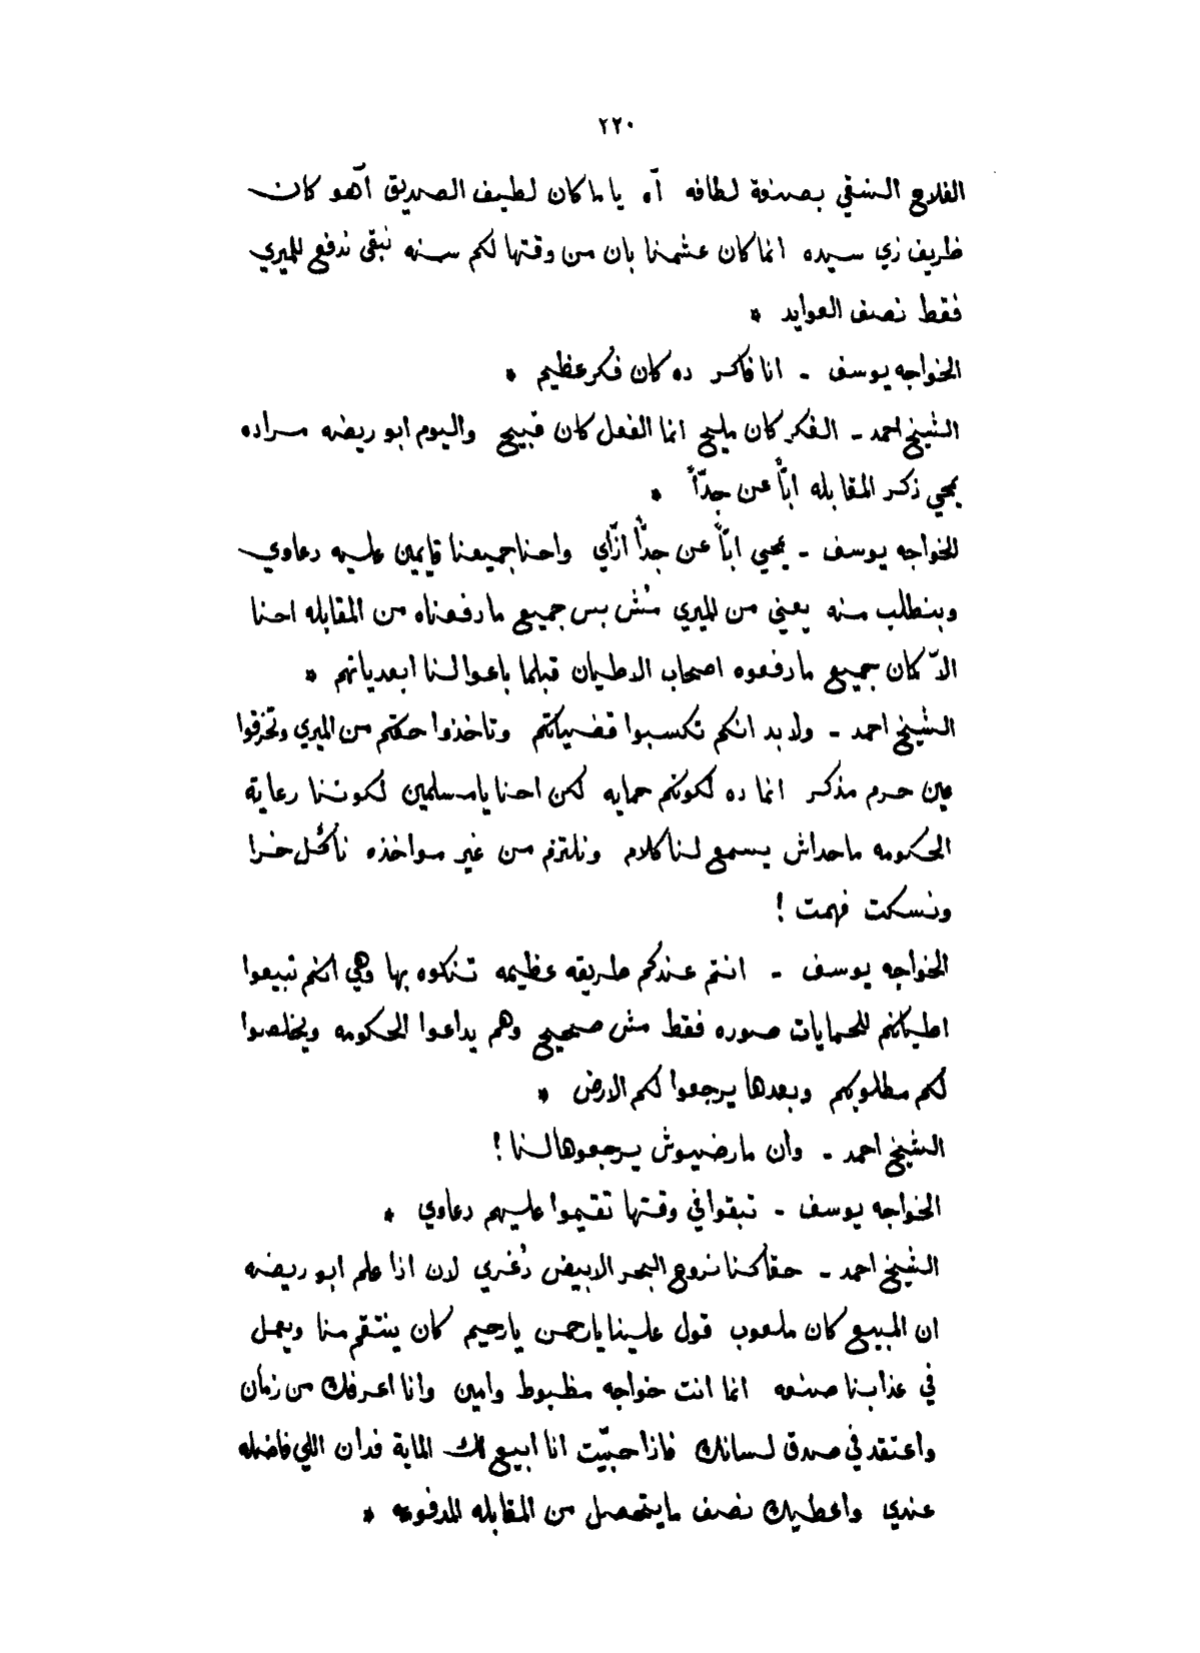 ٢٢٠
الفلاح الشقي بصنعة لطافه آه ياما كان لطيف الصديق آهو كان
ظريف زي سيده انما كان عشمنا بان من وقتها لكم سنه نبقى ندفع للميري
فقط نصف العوايد *
الخواجه يوسف - انا فاكر ده كان فكر عظيم *
الشيخ احمد - الفكر كان مليح انما الفعل كان قبيح واليوم ابو ريضه مراده
يمحي ذكر المقابله اباً عن جدّاً *
الخواجه يوسف - يمحي اباً عن جدّاً ازّاي واحنا جميعنا قايمين عليه دعاوي
وبنطلب منه يعني من الميري مُش بس جميع ما دفعناه من المقابله احنا
الاّ كمان جميع ما دفعوه اصحاب الاطيان قبلما باعوا لنا ابعدياتهم *
الشيخ احمد - ولا بد انكم تكسبوا قضياتكم وتاخذوا حقكم من الميري وتخزقوا
عين حرم مذكر انما ده لكونكم حمايه لكن احنا يا مسلمين لكوننا رعاية
الحكومه ما حداش يسمع لنا كلام ونلتزم من غير مواخذه نأكُل خرا
ونسكت فهمت !
الخواجه يوسف - انتم عندكم طريقه عظيمه تنكوه بها وهي انكم تبيعوا
اطيانكم للحمايات صوره فقط مش صحيح وهم يداعوا الحكومه ويخلصوا
لكم مطلوبكم وبعدها يرجعوا لكم الارض *
الشيخ احمد - وان ما رضيوش يرجعوها لنا !
الخواجه يوسف - تبقوا في وقتها تقيموا عليهم دعاوي *
الشيخ احمد - حقا كنا نروح البحر الابيض دُغري لان اذا علم ابو ريضه
ان المبيع كان ملعوب قول علينا يا رحمن يا رحيم كان ينتقم منا ويعمل
في عذابنا صنعه انما انت خواجه مظبوط وامين وانا اعرفك من زمان
واعتقد في صدق لسانك فاذا حبّيت انا ابيع لك الماية فدان اللي فاضله
عندي واعطيك نصف ما يتحصل من المقابله المدفوعه *